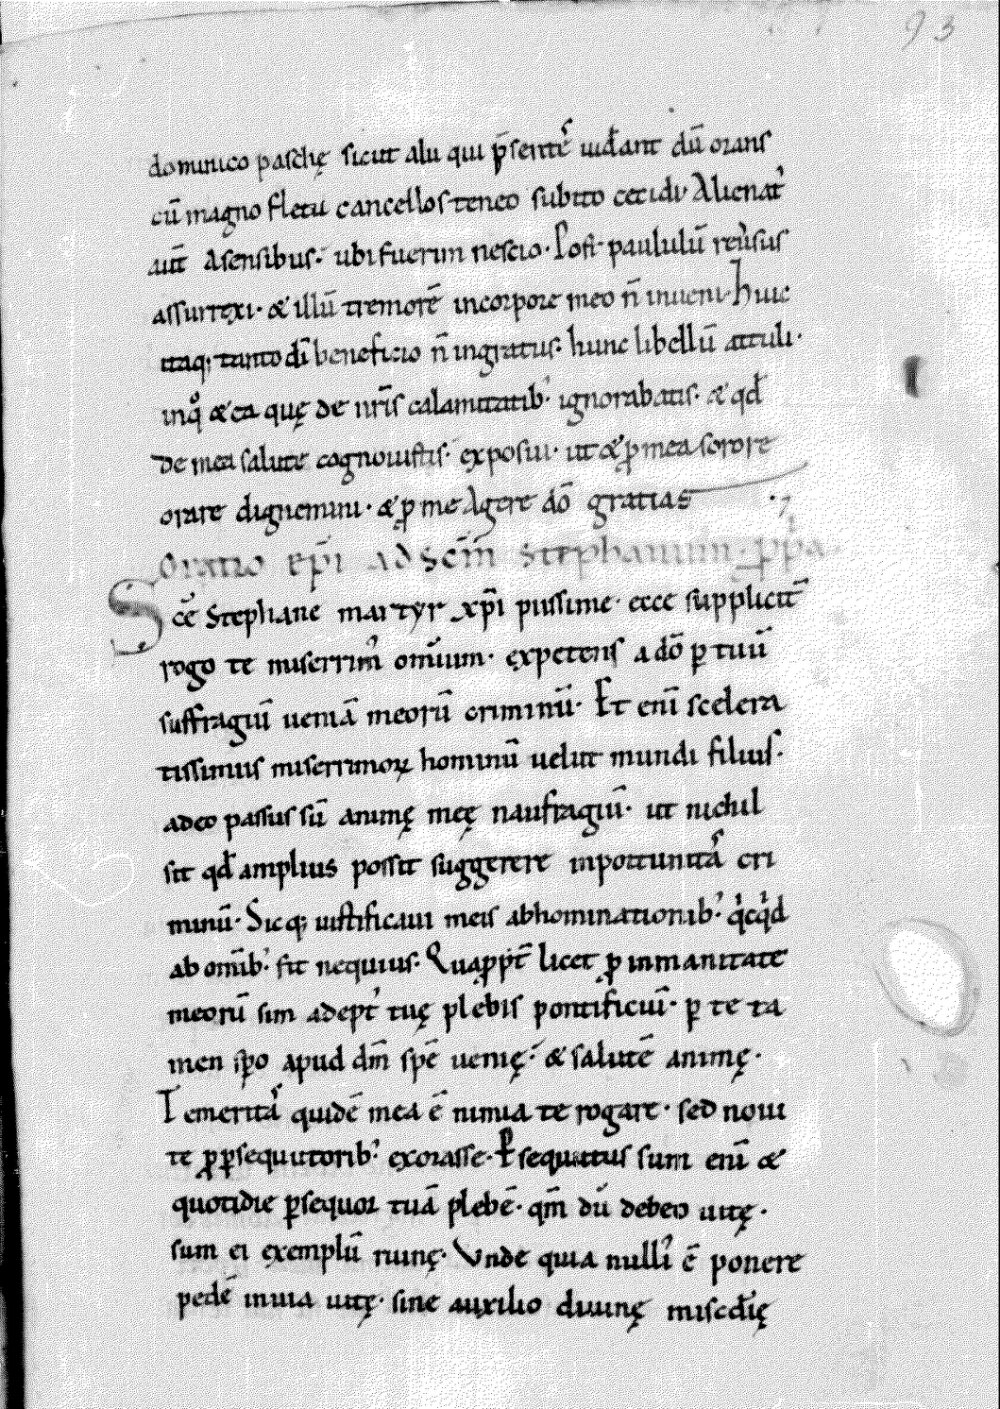 93
dominico paschę sicut alii qui p̄sentes uiđant dū orans
cū magno fletu cancellos teneo subito cecidi· Alienat᾽
aut̄ Asensibus· ubi fuerim nescio· Post paululū reuers᾽us
assurrexi· & illū tremorē incorpore meo n̄ inueni· Huic
itaq; tanto dī beneficio n̄ ingratus· hunc libellū attuli·
inqͦ & ea quę de nr̄is calamitatib᾽ ignorabatis· & qđ
de mea salute cognouistis· exposui· ut & ꝓ mea sorore
orare dignemini· & ꝓ me Agere dō gratias
Oratio ep̄i ad sc̄m stephanum·
Sc̄e Stephane martyr xp̄i piissime· ecce supplicit̄
rogo te miserrim᾽ omīum· expetens a dō ꝑ tuū
suffragiū ueniā meorū criminū· Et enī scelera
tissimus miserrimoꝝ hominū uelut mundi filius·
adeo passus sū animę meę naufragiū· ut nichil
sit qđ amplius possit suggerere inportunitas cri
minū· Sicq; iustificaui meis abhominationib᾽ qͥcqͥd
ab omīb᾽ fit nequius· Quaꝓpt̄ licet ꝓ inmanitate
meorū sim adept᾽ tuę plebis pontificiū· ꝑ te ta
men sꝑo apud dm̄ spē uenię· & salutē animę·
Temeritas quidē mea ē nimia te rogare· sed noui
te ꝓ ꝑsequutorib᾽ exorasse· Ꝑsequutus sum enī &
quotidie ꝑsequor tuā plebē· qm̄ dū debeo uitę·
sum ei exemplū ruinę· Vnde quia nulli᾽ ē ponere
pedē inuia uitę· sine auxilio diuinę misc̄dię